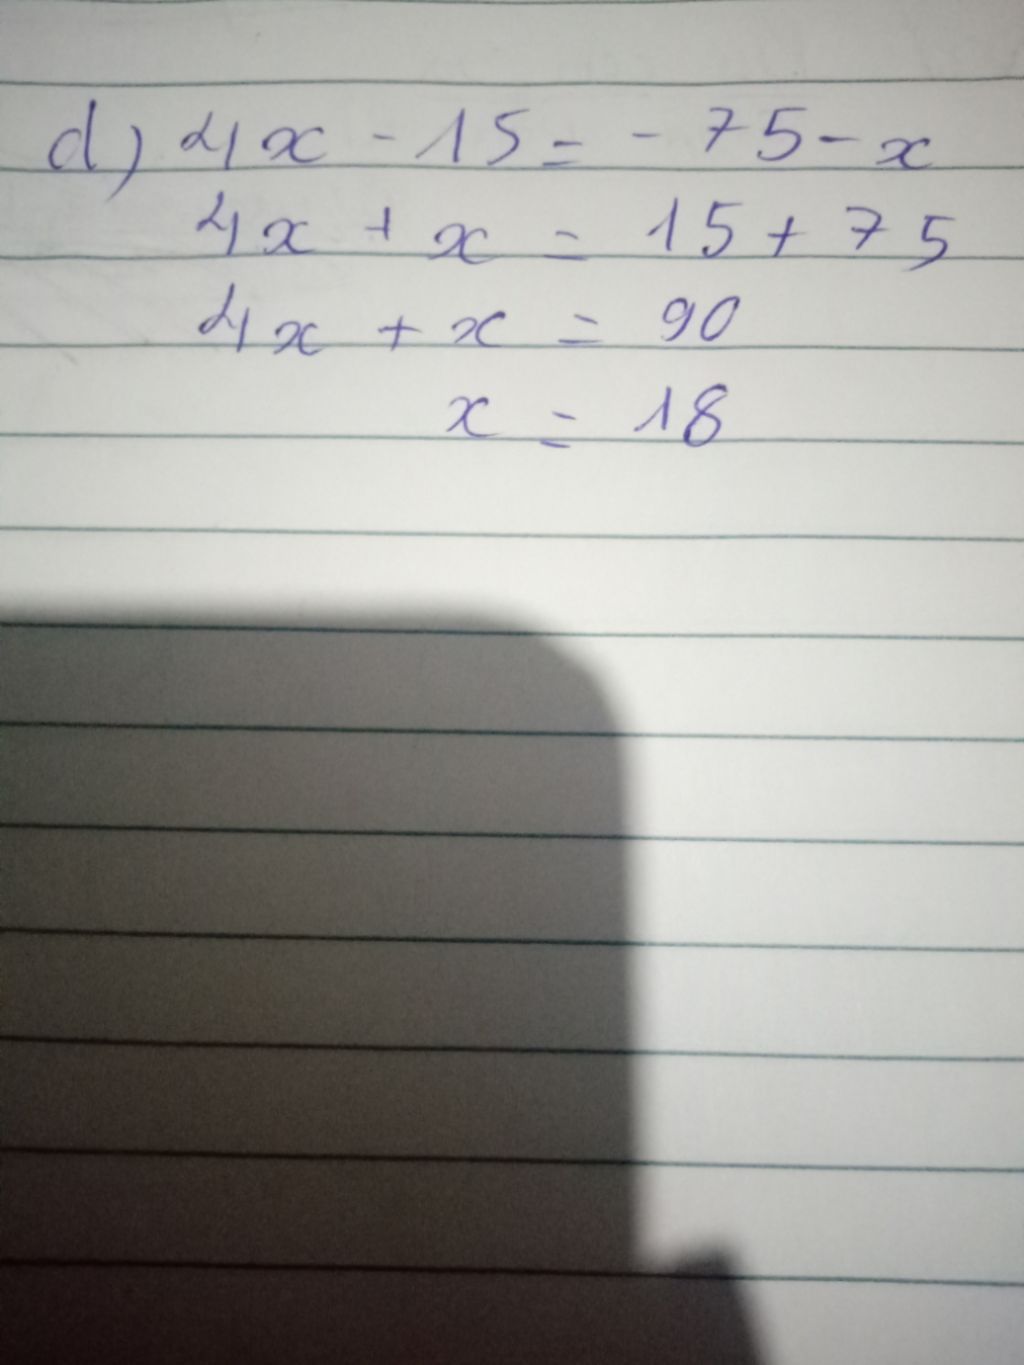 d) 4x - 15 = - 75 - x
4x + x = 15 + 75
4x + x = 90
x = 18